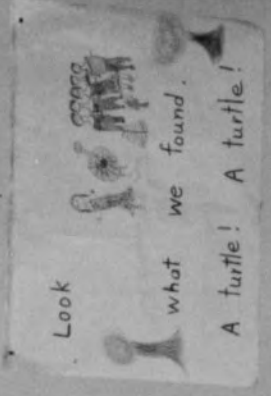 Look
what we found.
A turtle! A turtle!